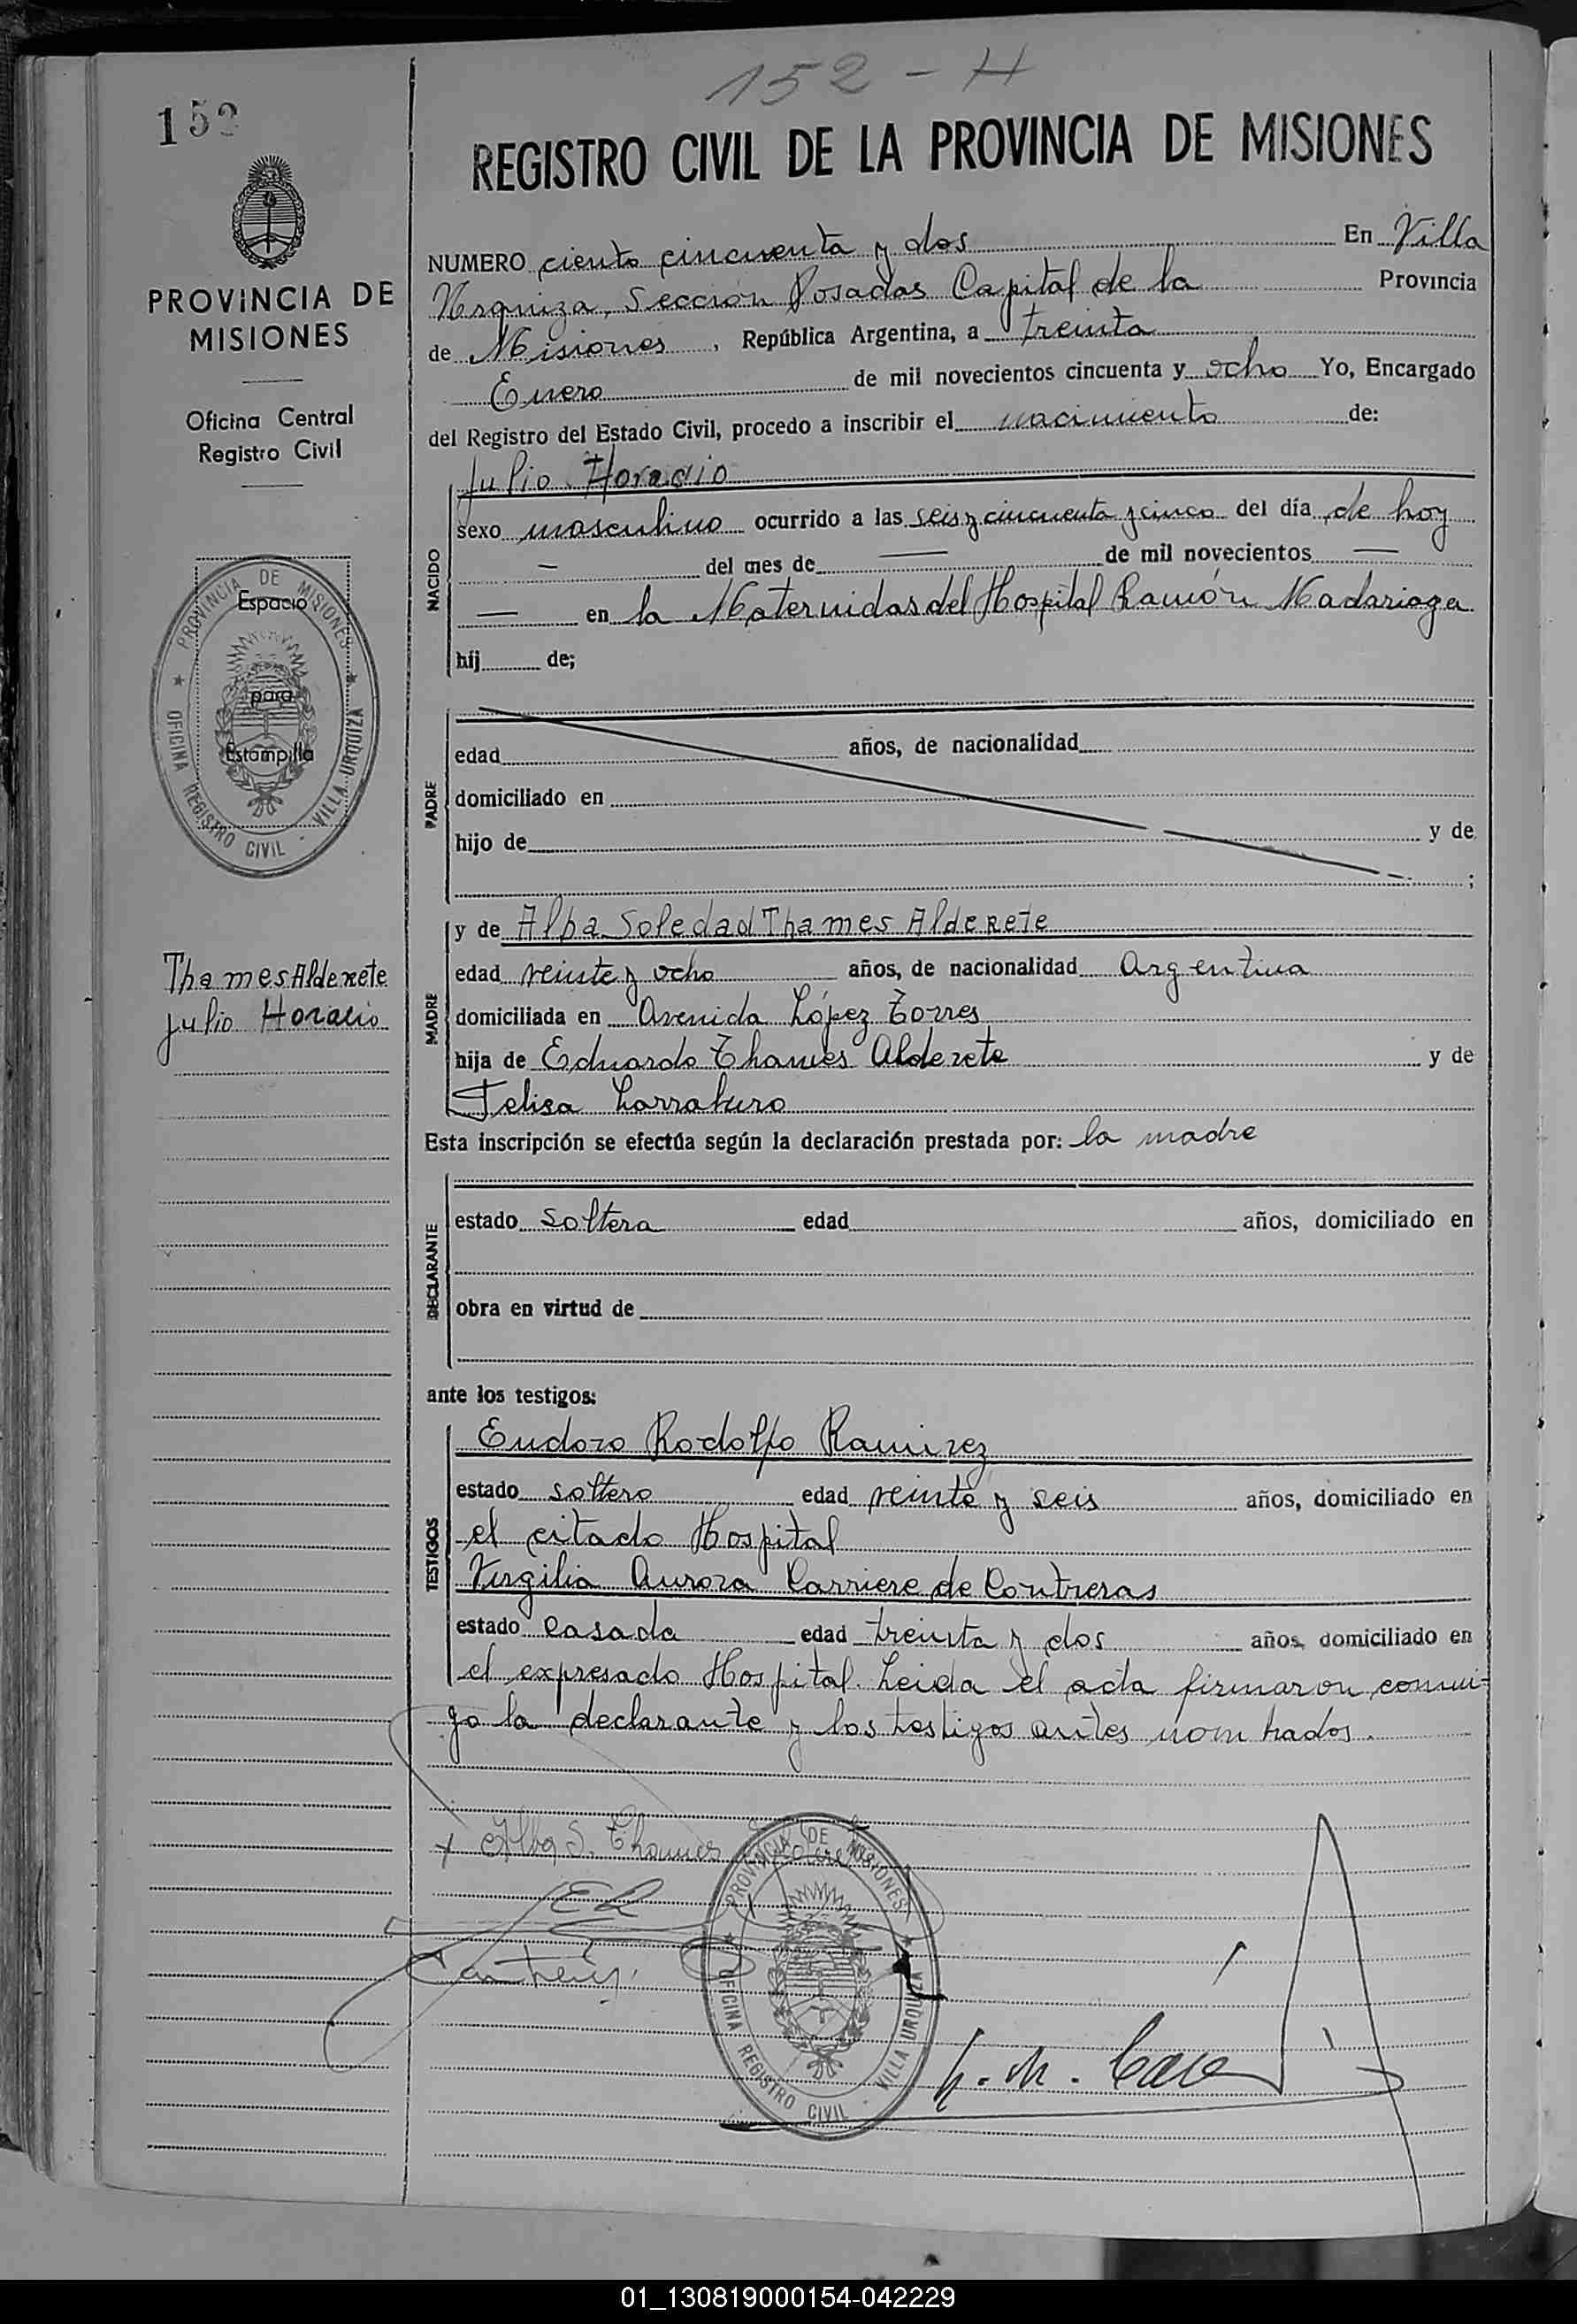 152 - H
152
REGISTRO CIVIL DE LA PROVINCIA DE MISIONES
PROVINCIA DE
MISIONES
Oficina Central
Registro Civil
PROVINCIA DE MISIONES
Espacio
para
Estampilla
OFICINA REGISTRO CIVIL - VILLA URQUIZA
Thames Alderete
Julio Horacio
NUMERO ciento cincuenta y dos En Villa
Urquiza, Sección Posadas Capital de la Provincia
de Misiones, República Argentina, a treinta
Enero de mil novecientos cincuenta y ocho Yo, Encargado
del Registro del Estado Civil, procedo a inscribir el nacimiento de:
NACIDO
Julio Horacio
sexo masculino ocurrido a las seis y cincuenta y cinco del día de hoy
— del mes de — de mil novecientos —
— en la Maternidad del Hospital Ramón Madariaga
hij de;
PADRE
edad años, de nacionalidad
domiciliado en
hijo de y de
;
MADRE
y de Alba Soledad Thames Alderete
edad veinte y ocho años, de nacionalidad Argentina
domiciliada en Avenida López Torres
hija de Eduardo Thames Alderete y de
Felisa Larraburo
Esta inscripción se efectúa según la declaración prestada por: la madre
DECLARANTE
estado soltera edad años, domiciliado en
obra en virtud de
ante los testigos:
TESTIGOS
Eudoro Rodolfo Ramirez
estado soltero edad veinte y seis años, domiciliado en
el citado Hospital
Virgilia Aurora Carriere de Contreras
estado casada edad treinta y dos años, domiciliado en
el expresado Hospital. Leida el acta firmaron conmi-
go la declarante y los testigos antes nombrados.
x Alba S. Thames Alderete
PROVINCIA DE MISIONES
OFICINA REGISTRO CIVIL - VILLA URQUIZA
01_130819000154-042229